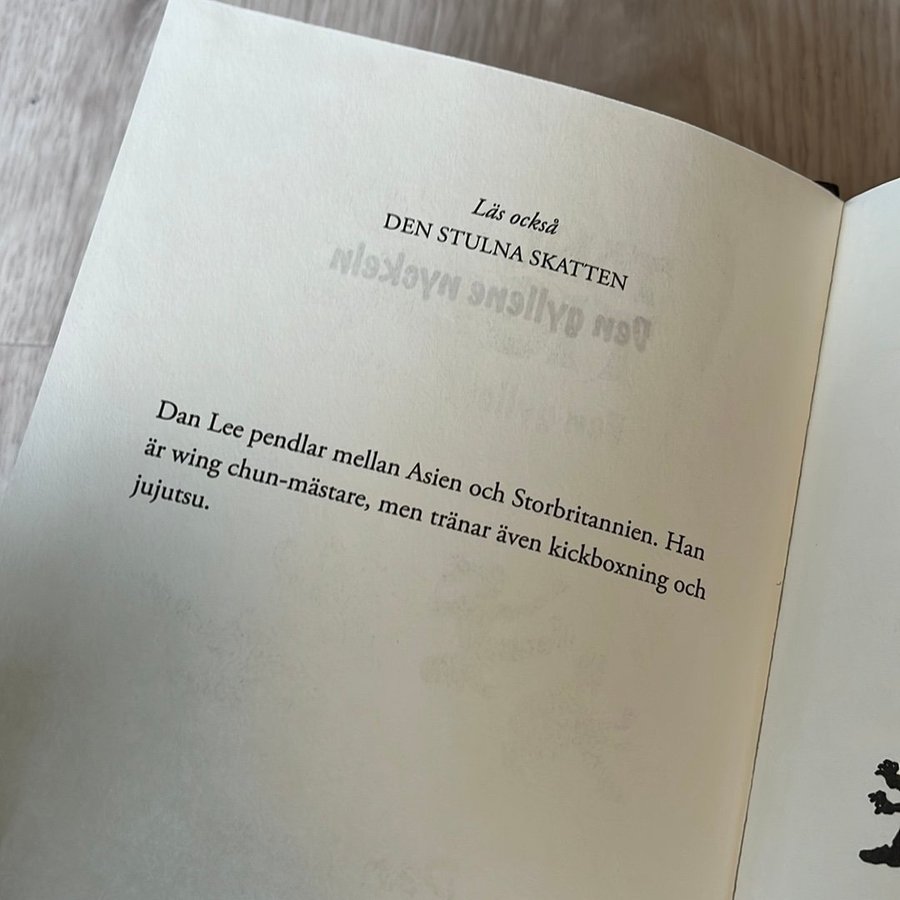 Läs också
DEN STULNA SKATTEN
Den gyllene nyckeln
Dan Lee pendlar mellan Asien och Storbritannien. Han
är wing chun-mästare, men tränar även kickboxning och
jujutsu.